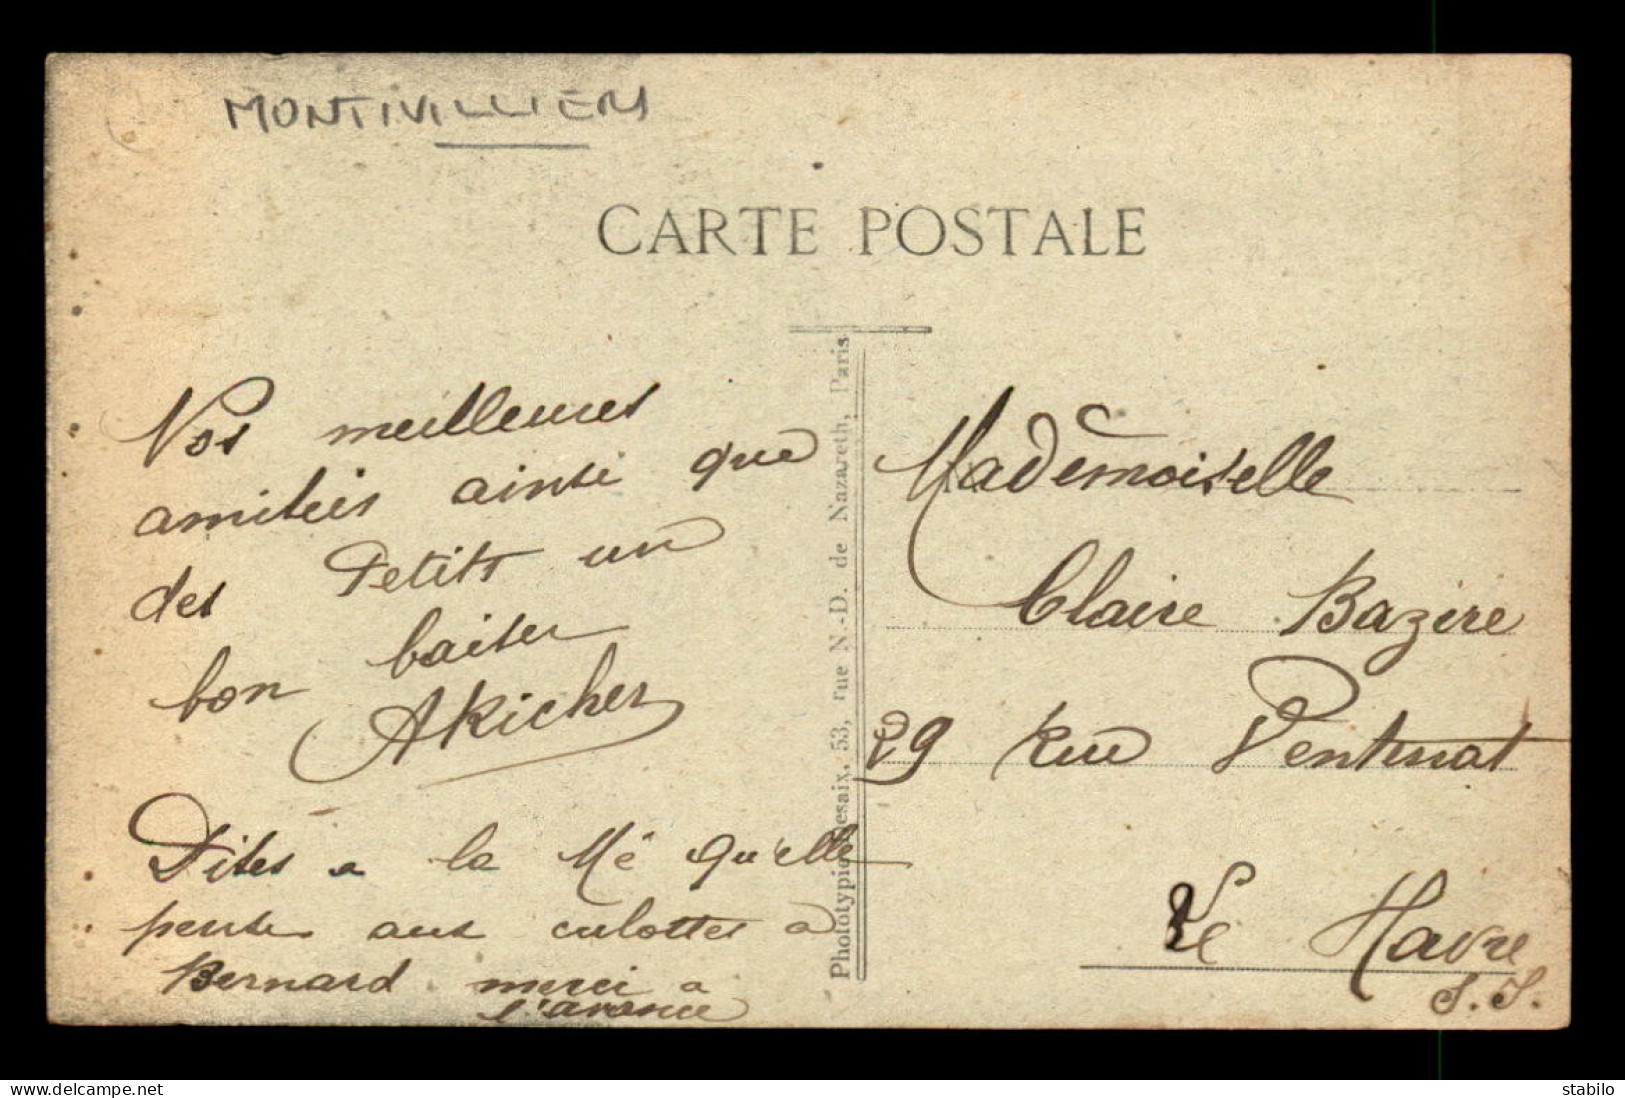 MONTIVILLIERS
CARTE POSTALE
Nos meilleures
amitiés ainsi que
des Petits un
bon baiser
AKicher
Dites a la Mé qu'elle
pense aux culottes à
Bernard merci a
l'avance
Phototypie Desaix, 53, rue N.-D. de Nazareth, Paris
Mademoiselle
Claire Bazire
29 Rue
Le Havre
S.I.
www.delcampe.net
stabilo